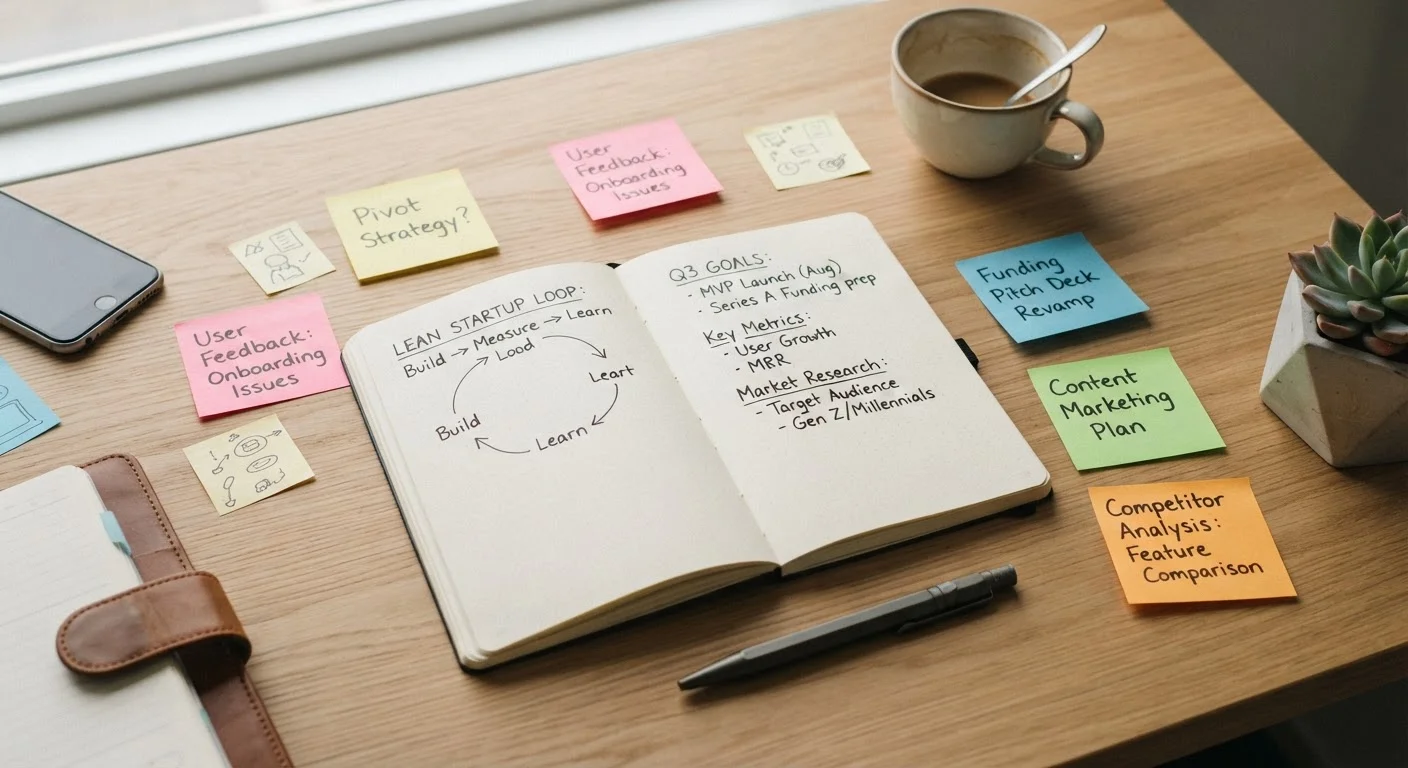 User
Feedback:
Onboarding
Issues
Pivot
Strategy?
User
Feedback:
Onboarding
Issues
LEAN STARTUP LOOP:
Build → Measure → Learn
Lood
Leart
Build
Learn
Q3 GOALS:
- MVP Launch (Aug)
- Series A Funding prep
Key Metrics:
- User Growth
- MRR
Market Research:
- Target Audience
- Gen Z/Millennials
Funding
Pitch Deck
Revamp
Content
Marketing
Plan
Competitor
Analysis:
Feature
Comparison